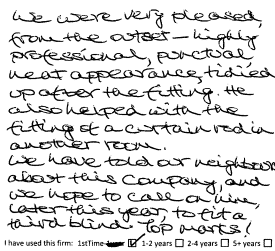 We were very pleased,
from the outset – highly
professional, punctual,
neat appearance, tidied
up after the fitting. He
also helped with the
fitting of a curtain rod in
another room.
We have told our neighbours
about this company, and
we hope to call on him,
later this year, to fit a
third blind. Top marks!
I have used this firm: 1stTime 1-2 years 2-4 years 5+ years